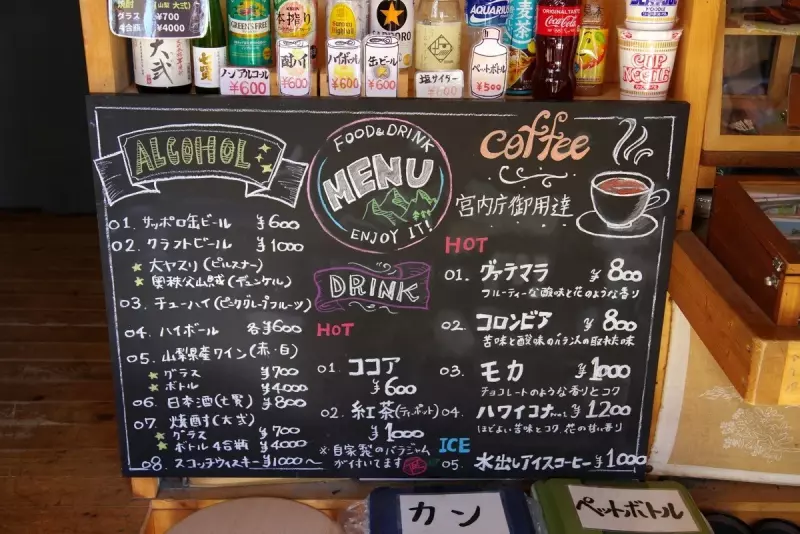 焼酎
グラス ¥700
4合瓶 ¥4000
大弐
七賢
GREEN'S FREE
本搾り
SAPPORO
AQUARIUS
麦茶
Coca-Cola
CUP
NOODLE
ノンアルコール
¥600
酎ハイ
¥600
ハイボール
¥600
缶ビール
¥600
塩サイダー
¥600
ペットボトル
¥500
ALCOHOL
01. サッポロ缶ビール ¥600
02. クラフトビール ¥1000
★ 大ヤスリ(ピルスナー)
★ 奥秩父山賊(デュンケル)
03. チューハイ(ピーチ,グレープフルーツ)
04. ハイボール 各¥600
05. 山梨県産ワイン(赤・白)
★ グラス ¥700
★ ボトル ¥4000
06. 日本酒(七賢) ¥800
07. 焼酎(大弐)
★ グラス ¥700
★ ボトル 4合瓶 ¥4000
08. スコッチウィスキー ¥1000〜
FOOD & DRINK
MENU
ENJOY IT!
DRINK
HOT
01. ココア
¥600
02. 紅茶(ティーポット)
¥1000
※自家製のバラジャム
が付いてます
coffee
宮内庁御用達
HOT
01. グァテマラ ¥800
フルーティーな酸味と花のような香り
02. コロンビア ¥800
苦味と酸味のバランスの取れた味
03. モカ ¥1000
チョコレートのような香りとコク
04. ハワイコナ ¥1200
ほどよい苦味とコク,花の甘い香り
ICE
05. 水出しアイスコーヒー ¥1000
カン
ペットボトル